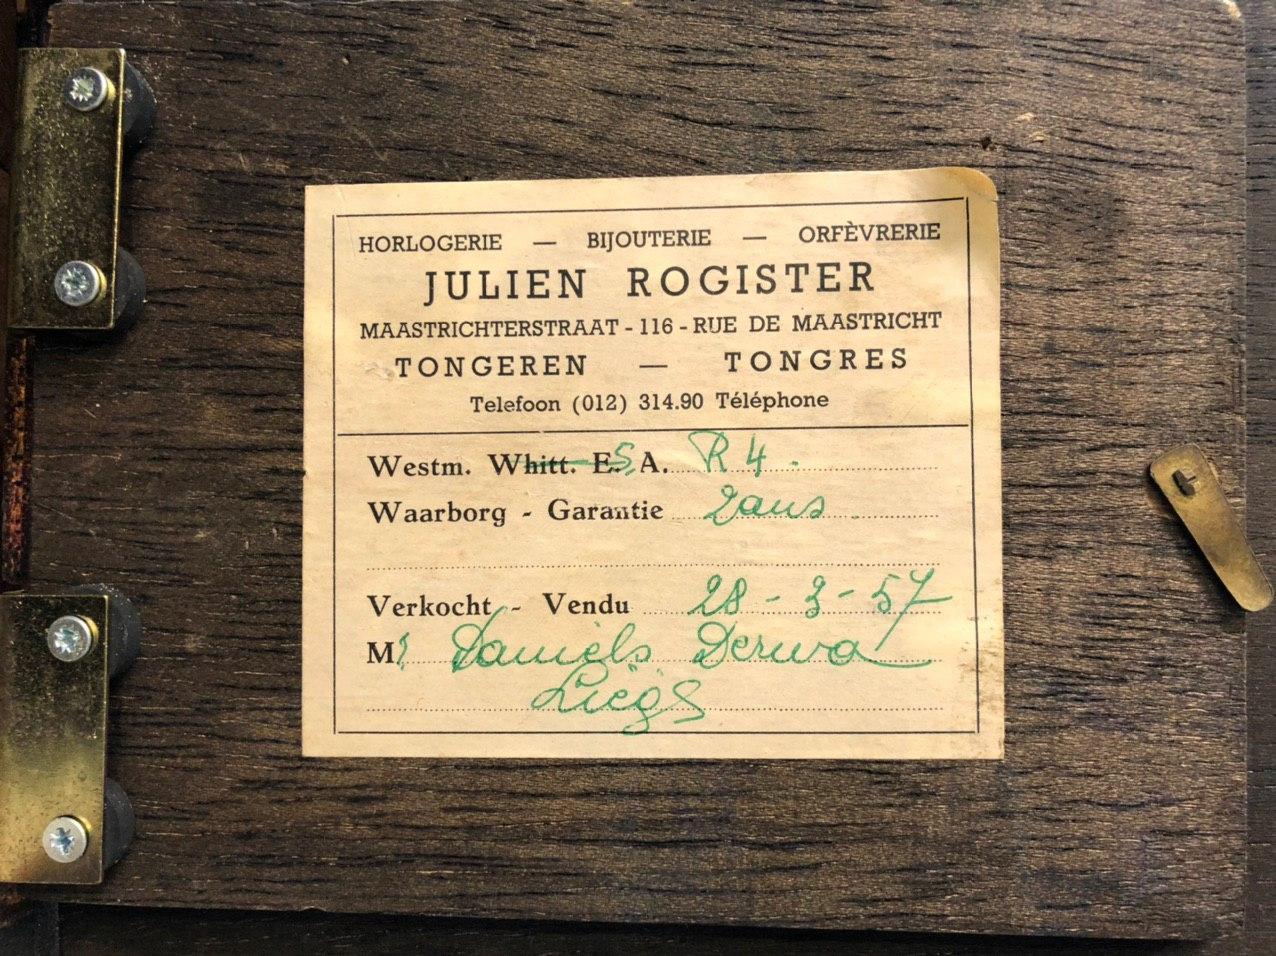 HORLOGERIE — BIJOUTERIE — ORFÈVRERIE
JULIEN ROGISTER
MAASTRICHTERSTRAAT - 116 - RUE DE MAASTRICHT
TONGEREN — TONGRES
Telefoon (012) 314.90 Téléphone
Westm. Whitt. E.S. A. R 4.
Waarborg - Garantie 2 ans
Verkocht - Vendu 28 - 3 - 57
Mr Daniëls Derwa